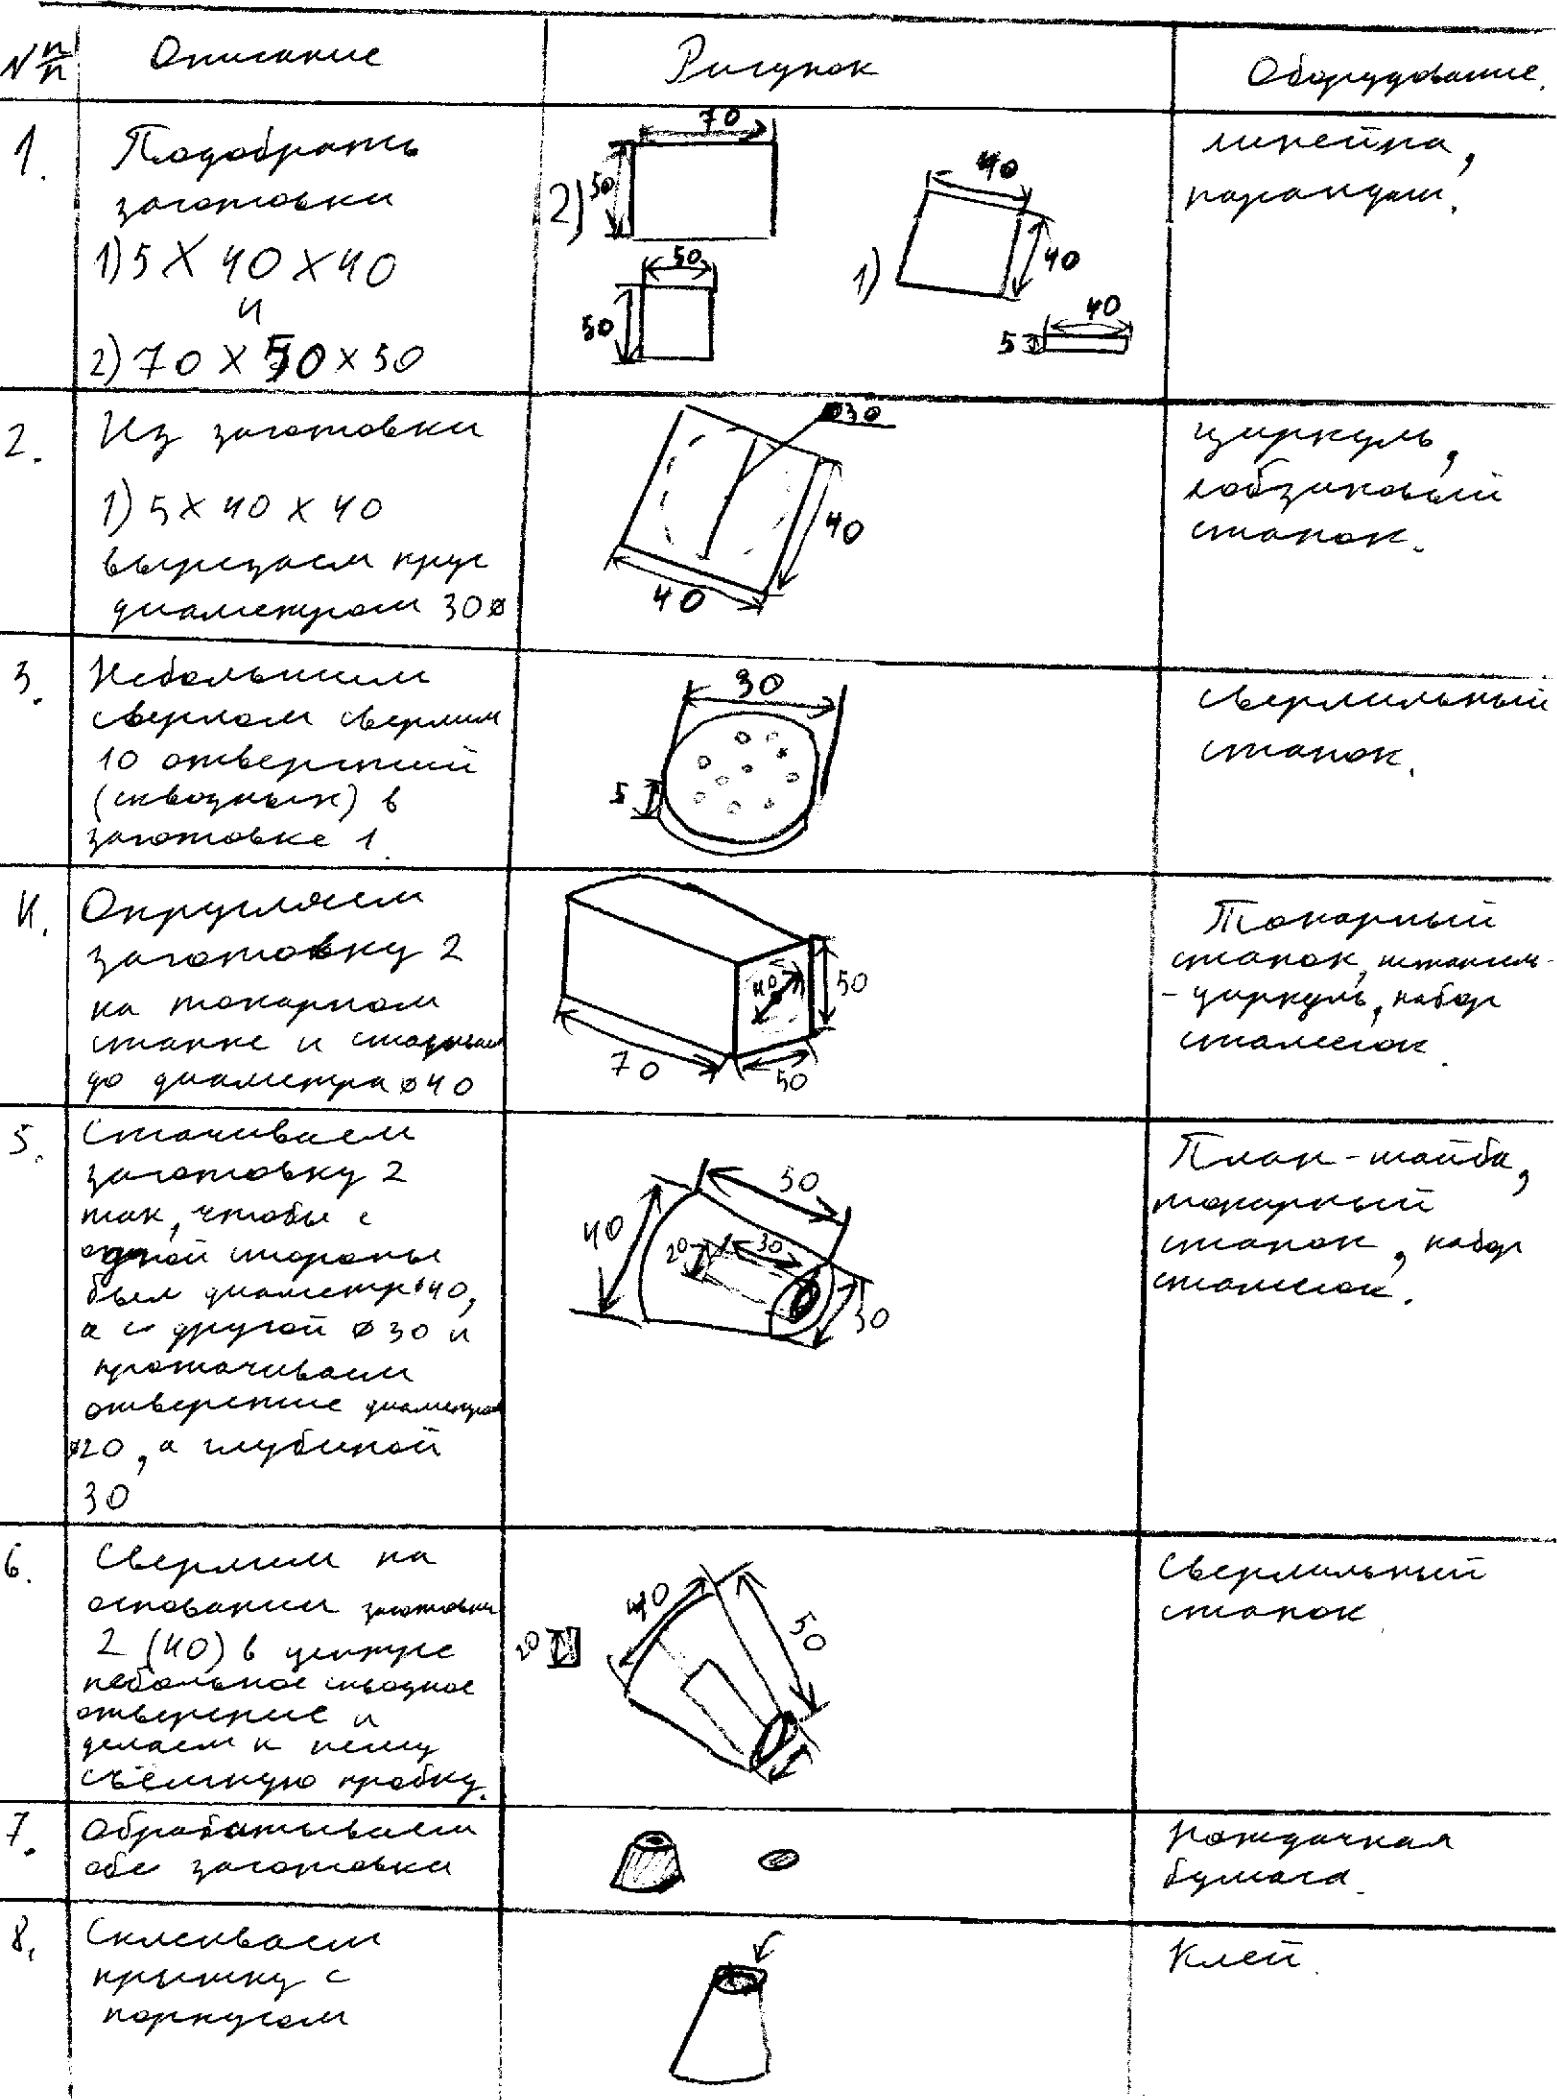 № п/п Описание Рисунок Оборудование.
1. Подобрать
заготовки
1) 5 X 40 X 40
и
2) 70 X 50 X 50
2) 70
50
50
50
1) 40
40
40
5
линейка,
карандаш.
2. Из заготовки
1) 5 X 40 X 40
вырезаем круг
диаметром 30ø
ø30
40
40
циркуль,
лобзиковый
станок.
3. Небольшим
сверлом сверлим
10 отверстий
(сквозных) в
заготовке 1.
30
5
сверлильный
станок.
4. Округляем
заготовку 2
на токарном
станке и стачиваем
до диаметра ø40
40
50
70
50
Токарный
станок, штанген-
-циркуль, набор
стамесок.
5. Стачиваем
заготовку 2
так, чтобы с
одной стороны
был диаметр ø40,
а с другой ø30 и
протачиваем
отверстие диаметром
ø20, а глубиной
30
50
40
20
30
30
План-шайба,
токарный
станок, набор
стамесок.
6. Сверлим на
основании заготовки
2 (40) в центре
небольшое сквозное
отверстие и
делаем к нему
съёмную пробку.
40
50
20
Сверлильный
станок
7. Обрабатываем
обе заготовки
Наждачная
бумага.
8. Склеиваем
крышку с
корпусом
Клей.